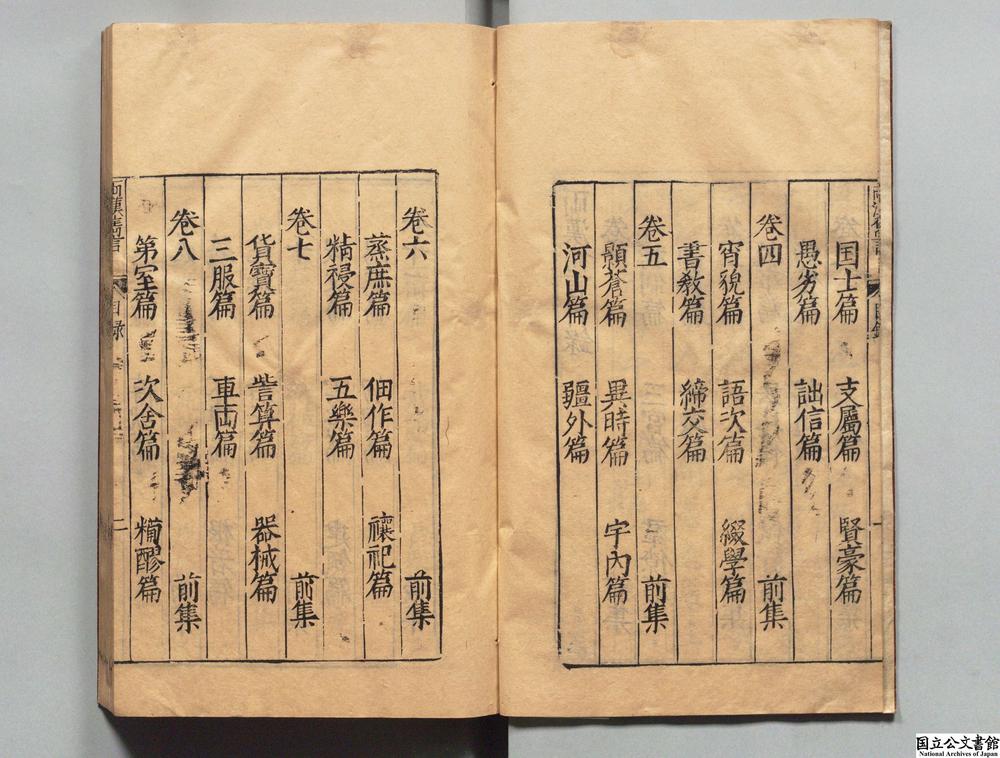 国士篇 支屬篇 賢豪篇
愚劣篇 詘信篇
卷四 前集
宵貌篇 語次篇 綴學篇
書教篇 締交篇
卷五 前集
顥蒼篇 異時篇 宇內篇
河山篇 疆外篇
卷六 前集
蒸庶篇 佃作篇 禳祀篇
精祲篇 五樂篇
卷七 前集
貨寶篇 訾算篇 器械篇
三服篇 車両篇
卷八 前集
第室篇 次舍篇 糒醪篇
兩漢雋言 目録 二
国立公文書館
National Archives of Japan